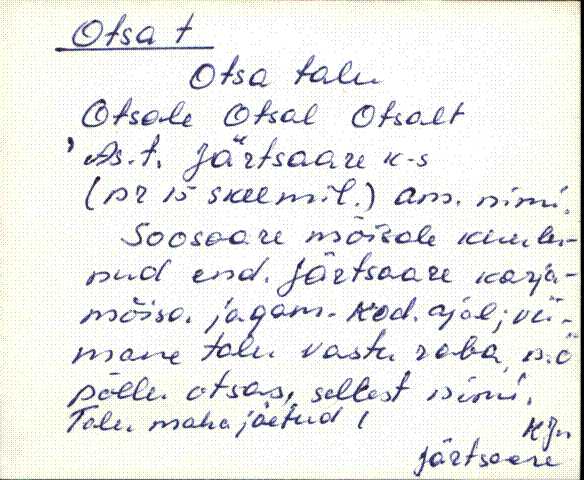 Otsa t
Otsa talu
Otsale Otsal Otsalt
As.t. Järtsaare k-s
(nr 15 skeemil.) am. nimi.
Soosaare mõisale kuulu-
nud end. Järtsaare karja-
mõisa jagam. kod. ajal; vii-
mane talu vastu raba, n.ö
põllu otsas, sellest nimi.
Talu maha jäetud
Järtsaare